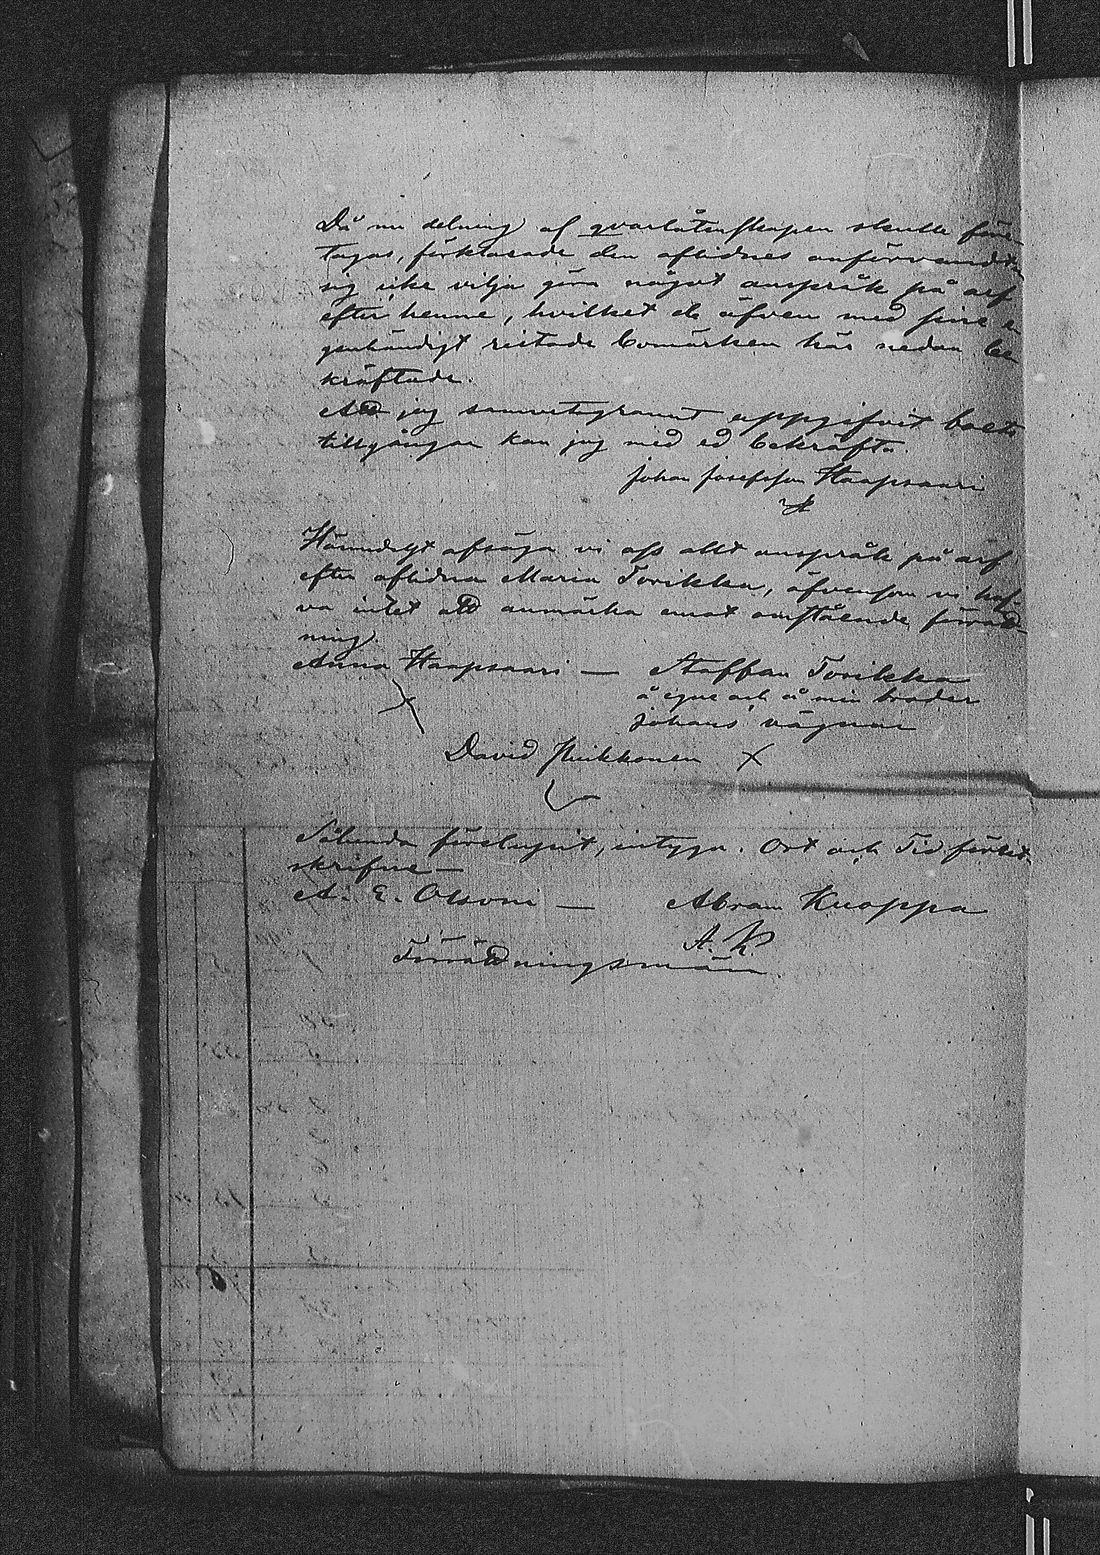 Då nu delning af qvarlåtenskapen skulle före
tagas, förklarade den aflidnes anförvandter
sig icke vilja göra något anspråk på arf
efter henne, hvilket de äfven med sine e
genhändigt ristade bomärken här nedan be
kräftade.
Att jag samvetsgrannt uppgifvit boets
tillgångar kan jag med ed bekräfta.
Johan Josefsson Haapsaari
Härmedelst afsäga vi oss allt anspråk på arf
efter aflidna Maria Torikka, äfvensom vi haf
va intet att anmärka emot omstående förrätt-
ning.
Anna Haapsaari — Staffan Torikka
å egne och å min broder
Johans vägnar
David Heikkonen
Sålunda förelupit, intyga. Ort och Tid förut
skrifne —
A. E. Olsoni — Abram Kuoppa
A. K.
Förrättningsmän.